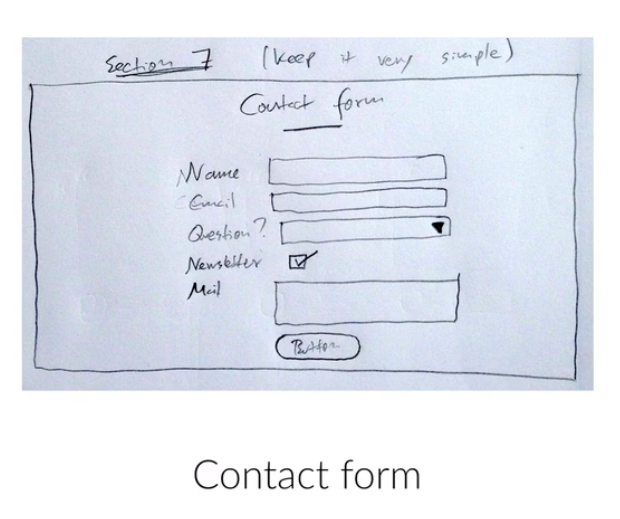 Section 7 (keep it very simple)
Contact form
Name
Email
Question?
Newsletter
Mail
Button
Contact form